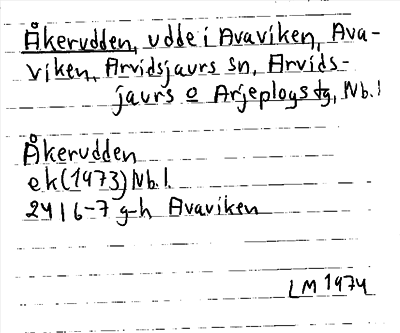 Åkerudden, udde i Avaviken, Ava-
viken, Arvidsjaurs sn, Arvids-
jaurs o Arjeplogs tg, Nb.l
Åkerudden
ek (1973) Nb.l.
24 I 6-7 g-h Avaviken
LM 1974